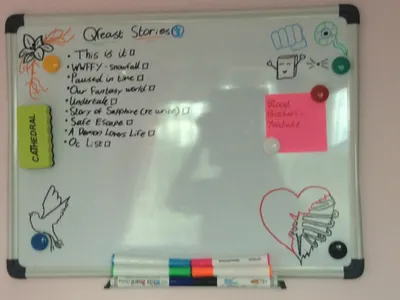 Qfeast Stories
• This is it
• WWFFY - snowfall
• Paused in time
• Our Fantasy world
• Undertale
• Story of Sapphire (re write)
• Safe Escape
• A Demon Lovers Life
• Oc List
CATHEDRAL
Blood
Youtube